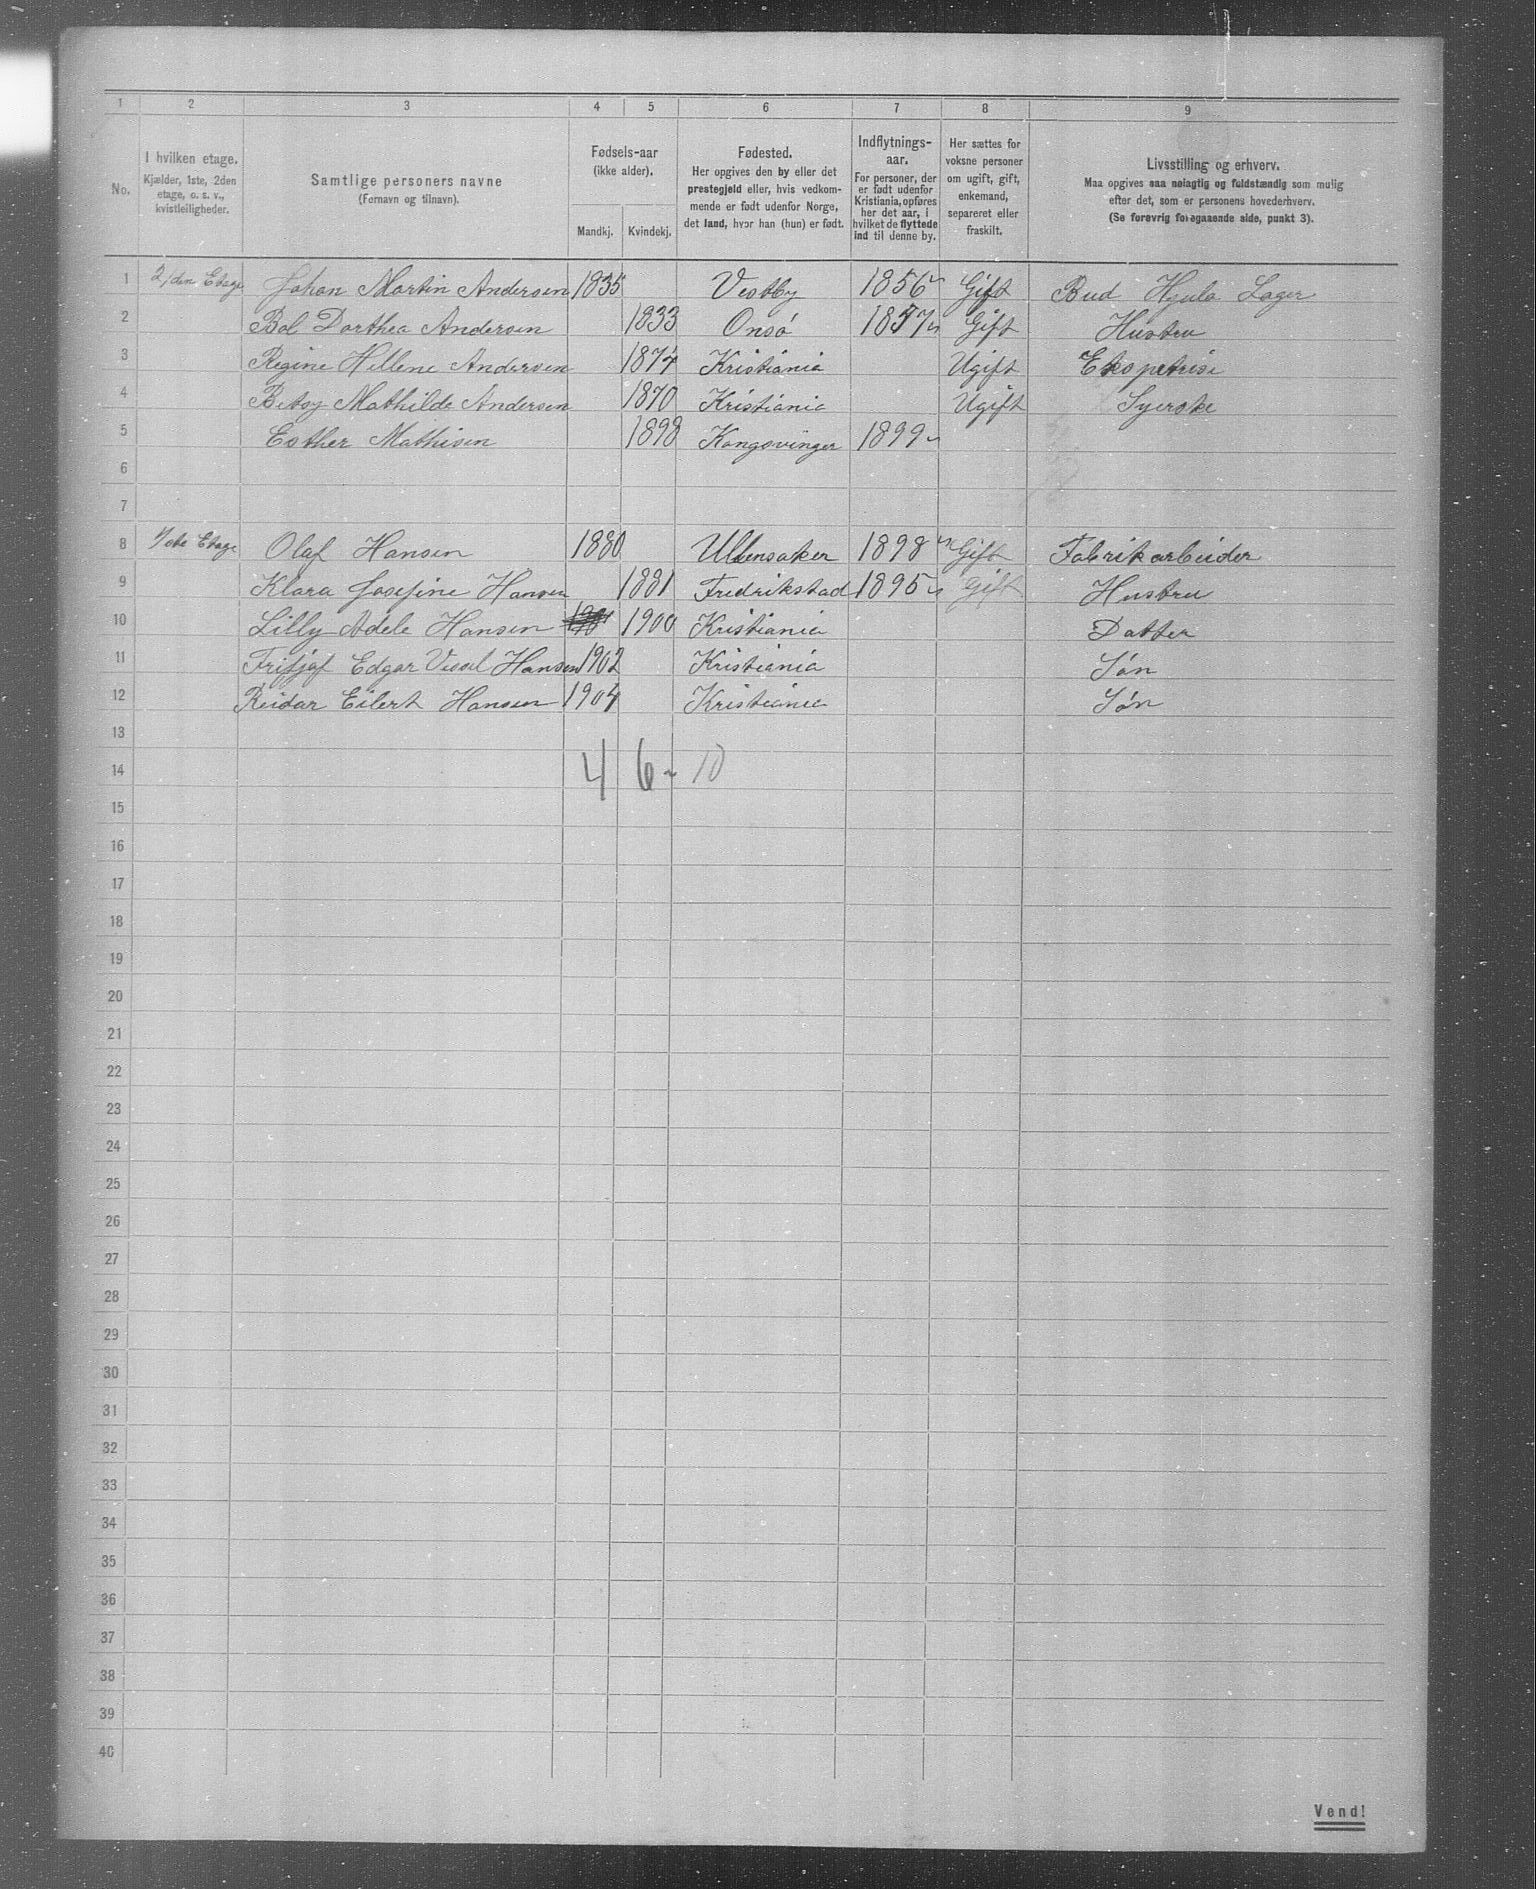 1 2 3 4 5 6 7 8 9
No.
I hvilken etage.
Kjælder, 1ste, 2den
etage, o. s. v.,
kvistleiligheder.
Samtlige personers navne
(Fornavn og tilnavn).
Fødsels-aar
(ikke alder).
Mandkj. Kvindekj.
Fødested.
Her opgives den by eller det
prestegjeld eller, hvis vedkom-
mende er født udenfor Norge,
det land, hvor han (hun) er født.
Indflytnings-
aar.
For personer, der
er født udenfor
Kristiania, opføres
her det aar, i
hvilket de flyttede
ind til denne by.
Her sættes for
voksne personer
om ugift, gift,
enkemand,
separeret eller
fraskilt.
Livsstilling og erhverv.
Maa opgives saa nøiagtig og fuldstændig som mulig
efter det, som er personens hovederhverv.
(Se forøvrig foregaaende side, punkt 3).
1 2/den Etage Johan Martin Andersen 1835 Vestby 1856 Gift Bud Hjula Lager
2 Bol Dorthea Andersen 1833 Onsø 1857 Gift Hustru
3 Regine Hellene Andersen 1874 Kristiania Ugift
4 Betsy Mathilde Andersen 1870 Kristiania Ugift Syerske
5 Esther Mathisen 1898 Kongsvinger 1899
6
7
8 1/ste Etage Olaf Hansen 1880 Ullensaker 1898 Gift Fabrikarbeider
9 Klara Josefine Hansen 1881 Fredrikstad 1895 Gift Hustru
10 Lilly Adele Hansen 1900 Kristiania Datter
11 Fritjof Edgar Hansen 1902 Kristiania Søn
12 Reidar Eilert Hansen 1904 Kristiania Søn
13
14 4 6 - 10
15
16
17
18
19
20
21
22
23
24
25
26
27
28
29
30
31
32
33
34
35
36
37
38
39
40
Vend!